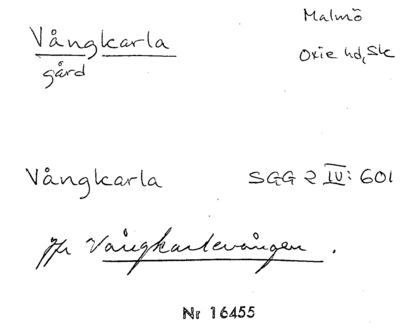 Vångkarla
gård
Malmö
Oxie hd, Sk
Vångkarla SGG 2 IV: 601
jfr Vångkarlevången.
Nr 16455